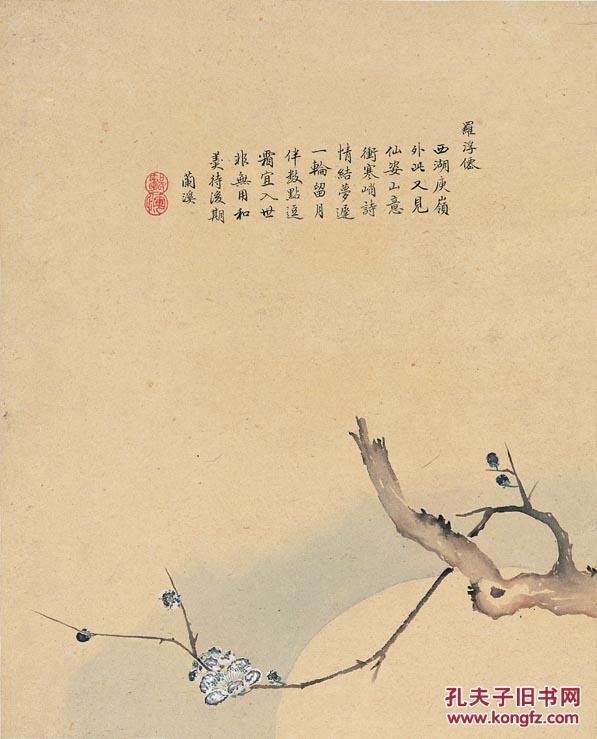 羅浮僊
西湖庾嶺
外此又見
仙姿山意
衝寒峭詩
情結夢遲
一輪留月
伴數點逗
霜宜入世
非無用和
羹待後期
蘭溪
孔夫子旧书网
www.kongfz.com